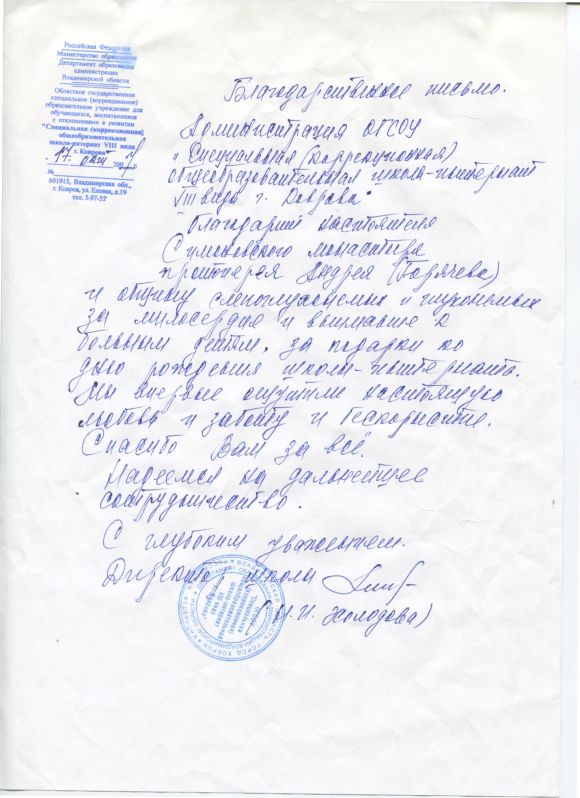 Российская Федерация
Министерство образования
Департамент образования
администрации
Владимирской области
Областное государственное
специальное (коррекционное)
образовательное учреждение для
обучающихся, воспитанников
с отклонениями в развитии
"Специальная (коррекционная)
общеобразовательная
школа-интернат VIII вида
г. Коврова"
17. 200
№
601915, Владимирская обл.,
г. Ковров, ул. Еловая, д.19
тел. 5-97-55
Благодарственное письмо.
Администрация ОГСОУ
„Специальная (коррекционная)
общеобразовательная школа-интернат
VIII вида г. Коврова"
благодарит настоятеля
монастыря
протоиерея Андрея (Горячева)
и общину слепоглухонемых и глухонемых
за милосердие и внимание к
больным детям, за подарки ко
дню рождения школы-интерната.
Мы впервые ощутили настоящую
любовь и заботу и бескорыстие.
Спасибо Вам за всё.
Надеемся на дальнейшее
сотрудничество.
С глубоким уважением.
Директор школы
(И.И. Холодова)